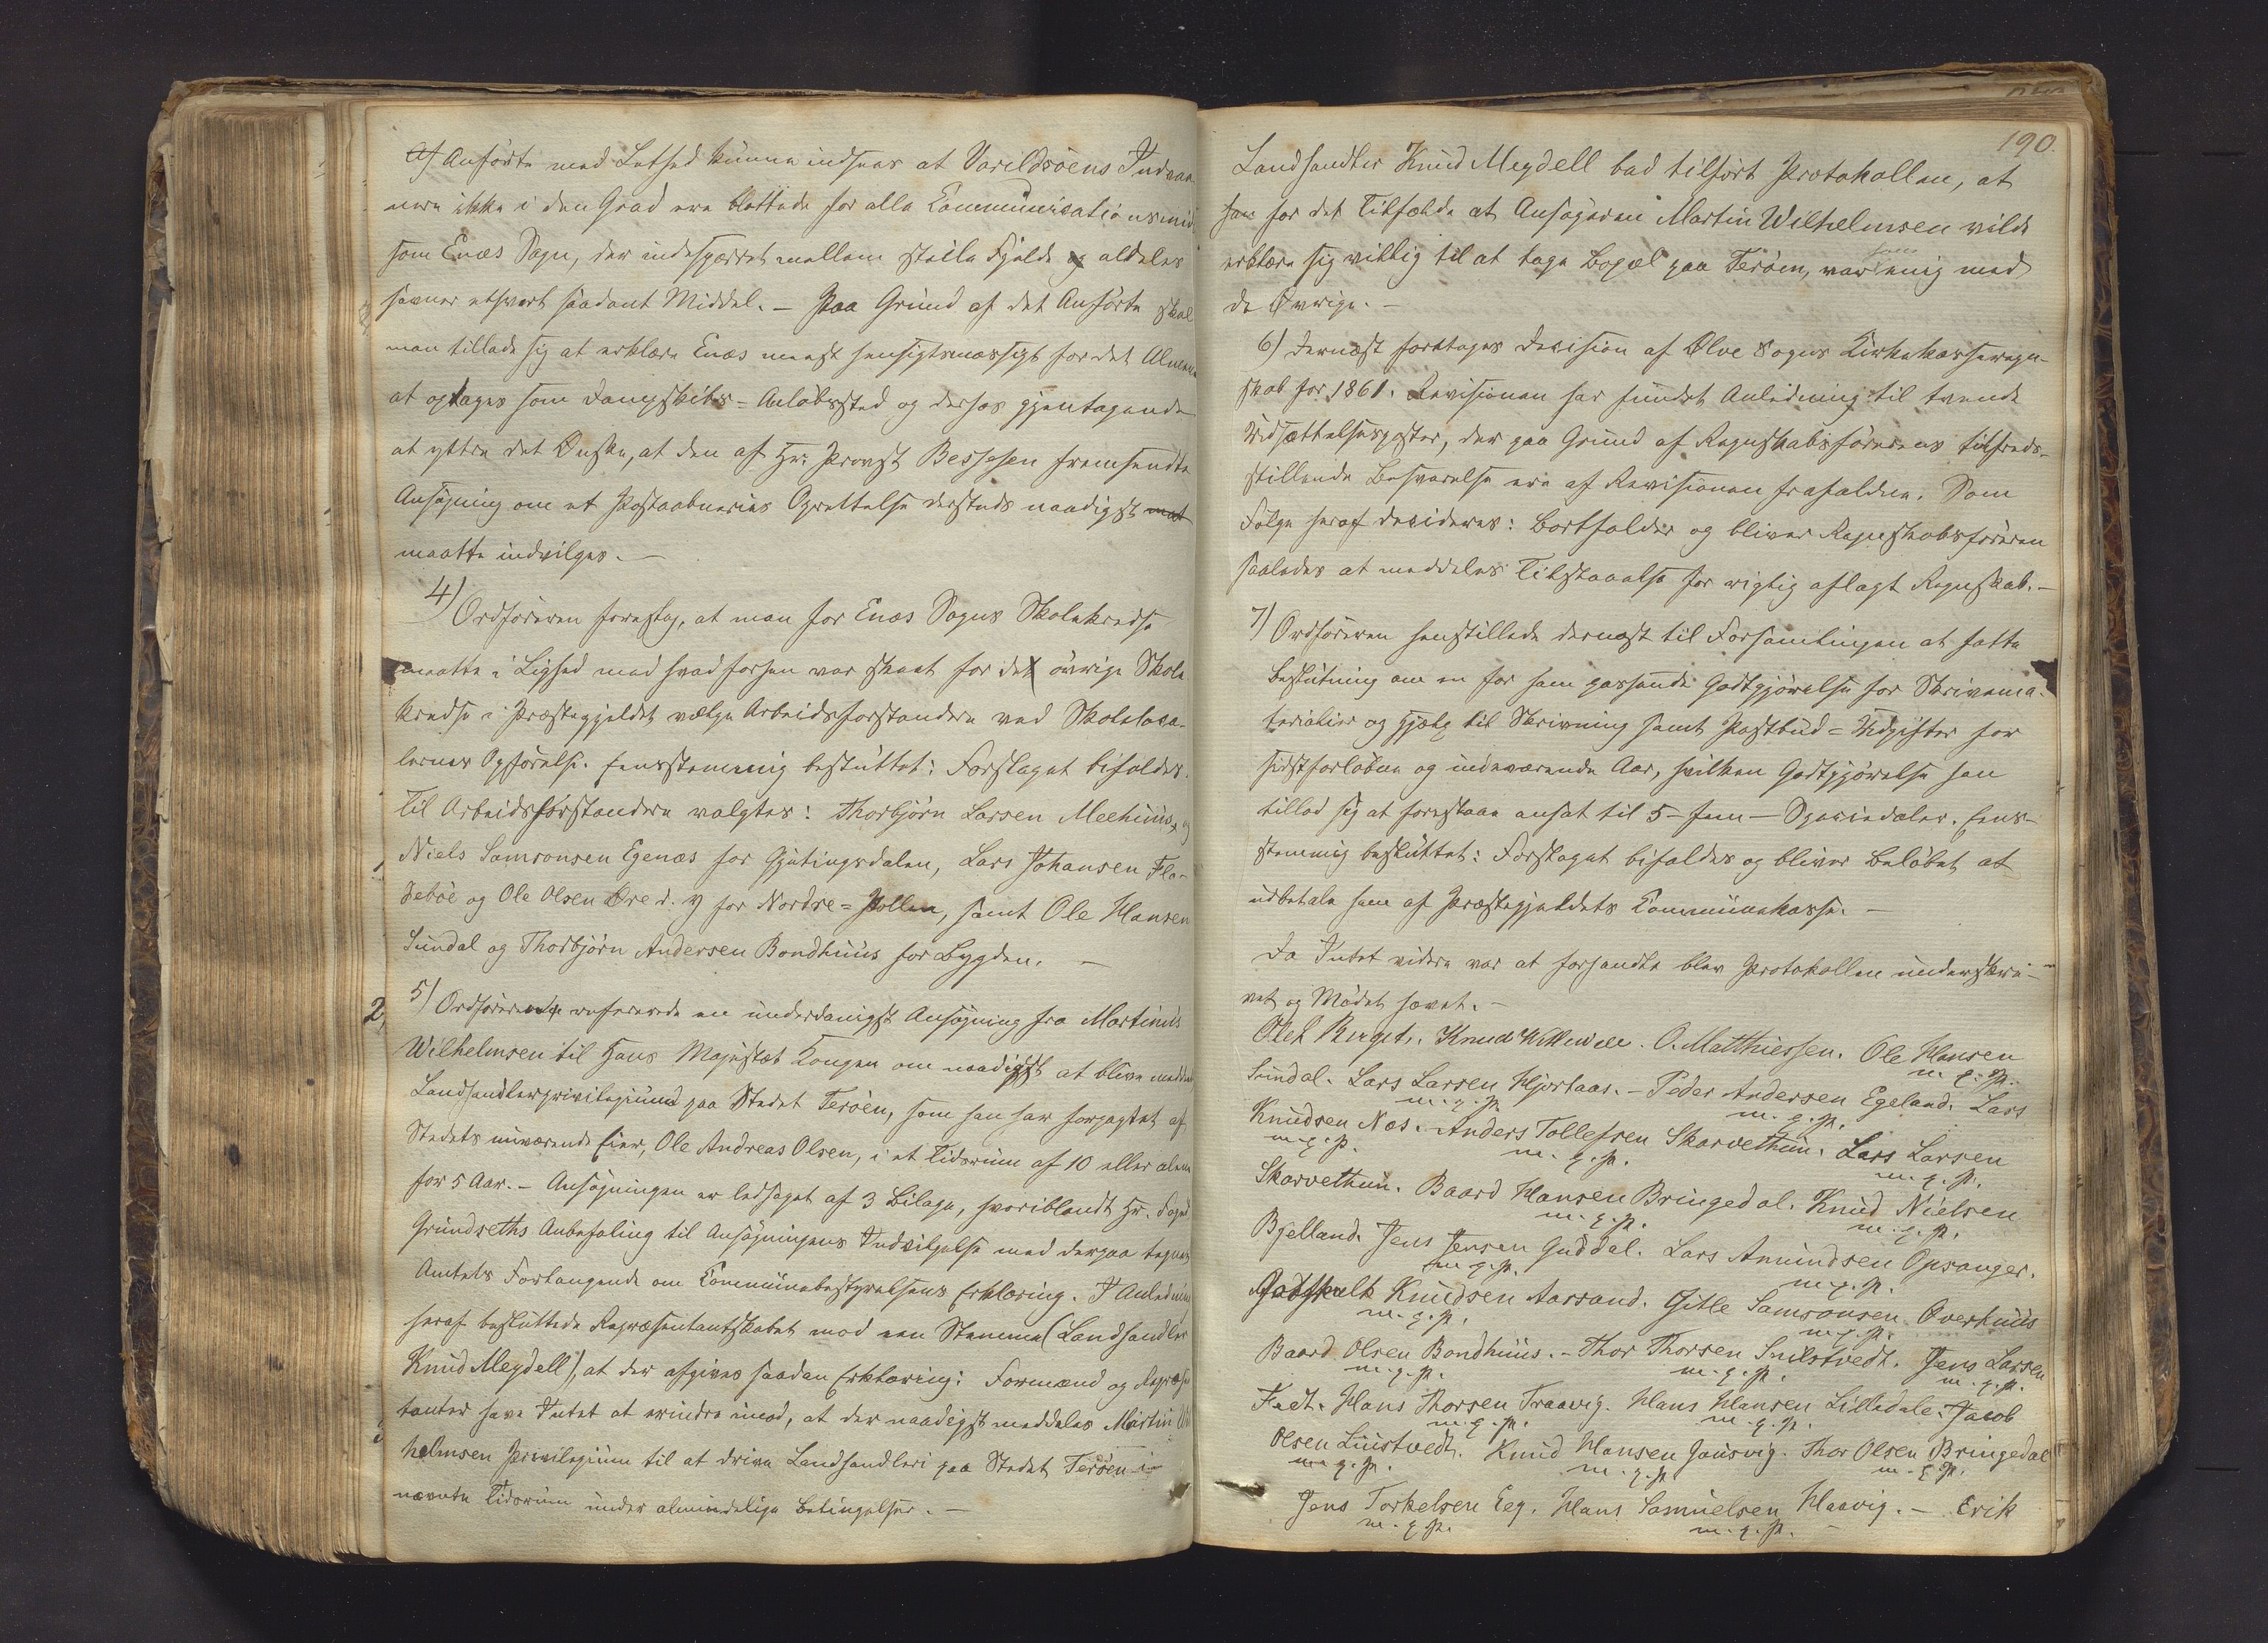 af Anførte med Lethed kunne indsees at Varildsöens Indvaa
nere ikke i den Grad ere blottede for alle Communicationsmid
som Enæs Sogn, der indespærret mellem steile Fjelde og aldeles
savner ethvert saadant Middel. – Paa Grund af det Anførte skal
man tillade sig at erklære Enæs meest hensigtsmæssigt for det Almene
at optages som Dampskibs-Anløbssted og derhos gjentagende
at yttre det Ønske, at den af Hr. Provst Bessesen fremsendte
Ansøgning om et Postaabneries Oprettelse dersteds naadigst
maatte indvilges. –
4) Ordføreren foreslog, at man for Enæs Sogns Skolekredse
maatte i Lighed med hvad forhen var skeet for de øvrige Skole
kredse i Præstegjeldet vælge Arbeidsforstandere ved Skoleloca-
lernes Opførelse. Eensstemmig besluttet: Forslaget bifaldes.
Til Arbeidsforstandere valgtes: Thorbjörn Larsen Meehuus, og
Niels Samsonsen Egenæs for Gjetingsdalen, Lars Johansen Fla-
deböe og Ole Olsen Øre d. y for Nordre-Pollen, samt Ole Hansen
Sundal og Thorbjörn Andersen Bondhuus for Bygden. –
2, 5) Ordføreren refererede en underdanigst Ansøgning fra Martinus
Wilhelmsen til Hans Majestæt Kongen om naadigst at blive meddeelt
Landhandlerprivilegium paa Stedet Teröen, som han har forpagtet af
Stedets nuværende Eier, Ole Andreas Olsen, i et Tidsrum af 10 eller alene
for 5 Aar. – Ansøgningen er ledsaget af 3 Bilage, hvoriblandt Hr. Foged
Grundseths Anbefaling til Ansøgningens Indvilgelse med derpaa tegnet
Amtets Forlangende om Communebestyrelsens Erklæring. I Anledning
heraf besluttede Repræsentantskabet mod een Stemme (Landhandler
Knud Meydell), at der afgives saadan Erklæring: Formænd og Repræsen
tanter have Intet at erindre imod, at der naadigst meddeles Martin Wil
helmsen Privilegium til at drive Landhandleri paa Stedet Teröen i
nævnte Tidsrum under almindelige Betingelser. –
190.
Landhandler Knud Meydell bad tilført Protokollen, at
han for det Tilfælde at Ansøgeren Martin Wilhelmsen vilde
erklære sig villig til at tage Bopæl paa Teröen, var enig med
de Øvrige. –
6) Dernæst foretoges Decision af Ølve Sogns Kirkekasseregn-
skab for 1861. Revisionen har fundet Anledning til tvende
Udsættelsesposter, der paa Grund af Regnskabsførerens tilfreds-
stillende Besvarelse ere af Revisionen frafaldne. Som
Følge heraf decideres: Bortfalder og bliver Regnskabsføreren
saaledes at meddeles Tilstaaelse for rigtig aflagt Regnskab. –
7) Ordføreren henstillede dernæst til Forsamlingen at fatte
Beslutning om en for ham passende Godtgjørelse for Skrivema-
terialier og Hjælp til Skrivning samt Postbud-Udgifter for
sidstforløbne og indeværende Aar, hvilken Godtgjørelse han
tillod sig at foreslaae ansat til 5 – fem – Speciedaler. Eens-
stemmig besluttet: Forslaget bifaldes og bliver Beløbet at
udbetale ham af Præstegjeldets Communekasse. –
Da Intet videre var at forhandle blev Protokollen underskre-
vet og Mødet hævet. –
O. Matthiessen. Ole Hansen
m. q. p.
Sundal. Lars Larsen Hjortaas. – Peder Andersen Egeland. Lars
m. q. p. m. q. p.
Knudsen Næs. Anders Tollefsen Skarvethun. Lars Larsen
m. q. p. m. q. p. m. q. p.
Skarvethun. Baard Hansen Bringedal. Knud Nielsen
m. q. p. m. q. p.
Bjelland. Jens Jensen Guddal. Lars Amundsen Opsanger.
m. q. p. m. q. p.
Godskalk Knudsen Aarsand. Gitle Samsonsen Overhuus
m. q. p. m. q. p.
Baard Olsen Bondhuus. – Thor Thorsen Snilstvedt. Jens Larsen
m. q. p. m. q. p. m. q. p.
Fedt. Hans Thorsen Traavig. Hans Hansen Lilledale. Jacob
m. q. p. m. q. p.
Olsen Liustvedt. Knud Hansen Gausvig. Thor Olsen Bringedal
m. q. p. m. q. p. m. q. p.
Jens Torkelsen Eeg. Hans Samuelsen Haavig. – Erik
m. q. p. m. q. p.